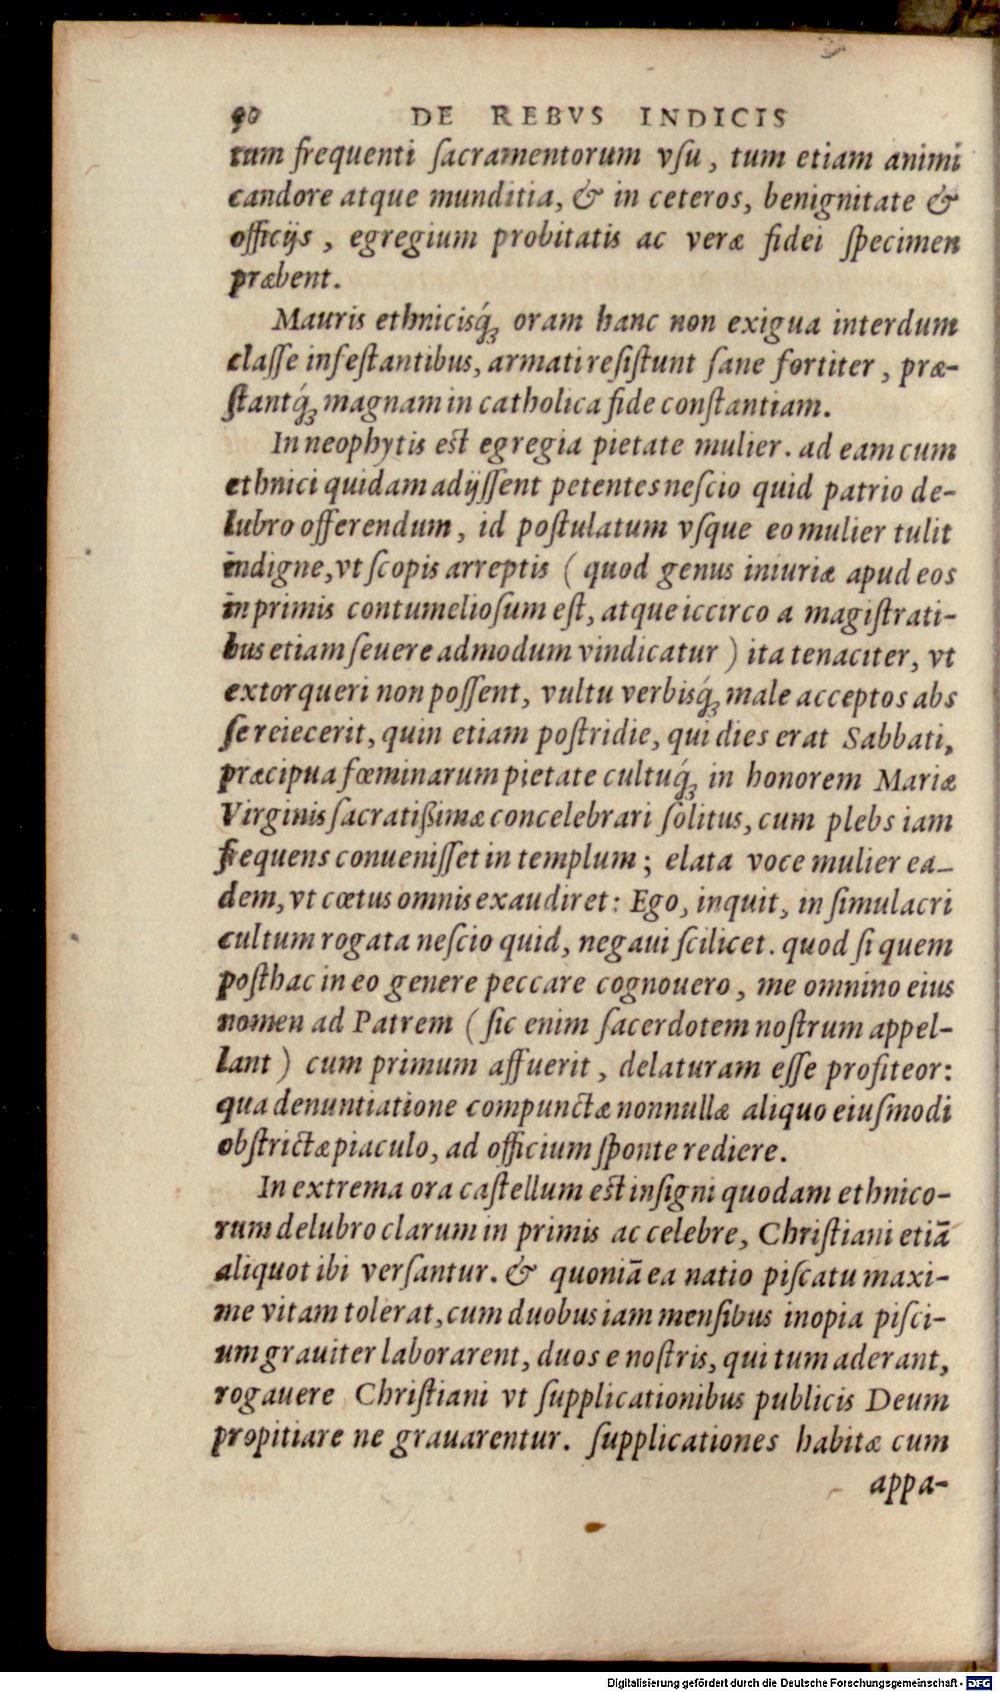 90 DE REBVS INDICIS
tum frequenti ſacramentorum vſu, tum etiam animi
candore atque munditia, & in ceteros, benignitate &
officijs, egregium probitatis ac veræ fidei ſpecimen
præbent.
Mauris ethnicisq́ꝫ oram hanc non exigua interdum
claſſe infeſtantibus, armati reſiſtunt ſane fortiter, præ-
ſtantq́ꝫ magnam in catholica fide conſtantiam.
In neophytis eſt egregia pietate mulier. ad eam cum
ethnici quidam adijſſent petentes neſcio quid patrio de-
lubro offerendum, id poſtulatum vſque eo mulier tulit
indigne, vt ſcopis arreptis (quod genus iniuriæ apud eos
in primis contumelioſum eſt, atque iccirco a magiſtrati-
bus etiam ſeuere admodum vindicatur) ita tenaciter, vt
extorqueri non poſſent, vultu verbisq́ꝫ male acceptos abs
ſe reiecerit, quin etiam poſtridie, qui dies erat Sabbati,
præcipua fœminarum pietate cultuq́ꝫ in honorem Mariæ
Virginis ſacratißimæ concelebrari ſolitus, cum plebs iam
frequens conueniſſet in templum; elata voce mulier ea-
dem, vt cœtus omnis exaudiret: Ego, inquit, in ſimulacri
cultum rogata neſcio quid, negaui ſcilicet. quod ſi quem
poſthac in eo genere peccare cognouero, me omnino eius
nomen ad Patrem (ſic enim ſacerdotem noſtrum appel-
lant) cum primum affuerit, delaturam eſſe profiteor:
qua denuntiatione compunctæ nonnullæ aliquo eiuſmodi
obſtrictæ piaculo, ad officium ſponte rediere.
In extrema ora caſtellum eſt inſigni quodam ethnico-
rum delubro clarum in primis ac celebre, Chriſtiani etiā
aliquot ibi verſantur. & quoniā ea natio piſcatu maxi-
me vitam tolerat, cum duobus iam menſibus inopia piſci-
um grauiter laborarent, duos e noſtris, qui tum aderant,
rogauere Chriſtiani vt ſupplicationibus publicis Deum
propitiare ne grauarentur. ſupplicationes habitæ cum
appa-
Digitalisierung gefördert durch die Deutsche Forschungsgemeinschaft - DFG